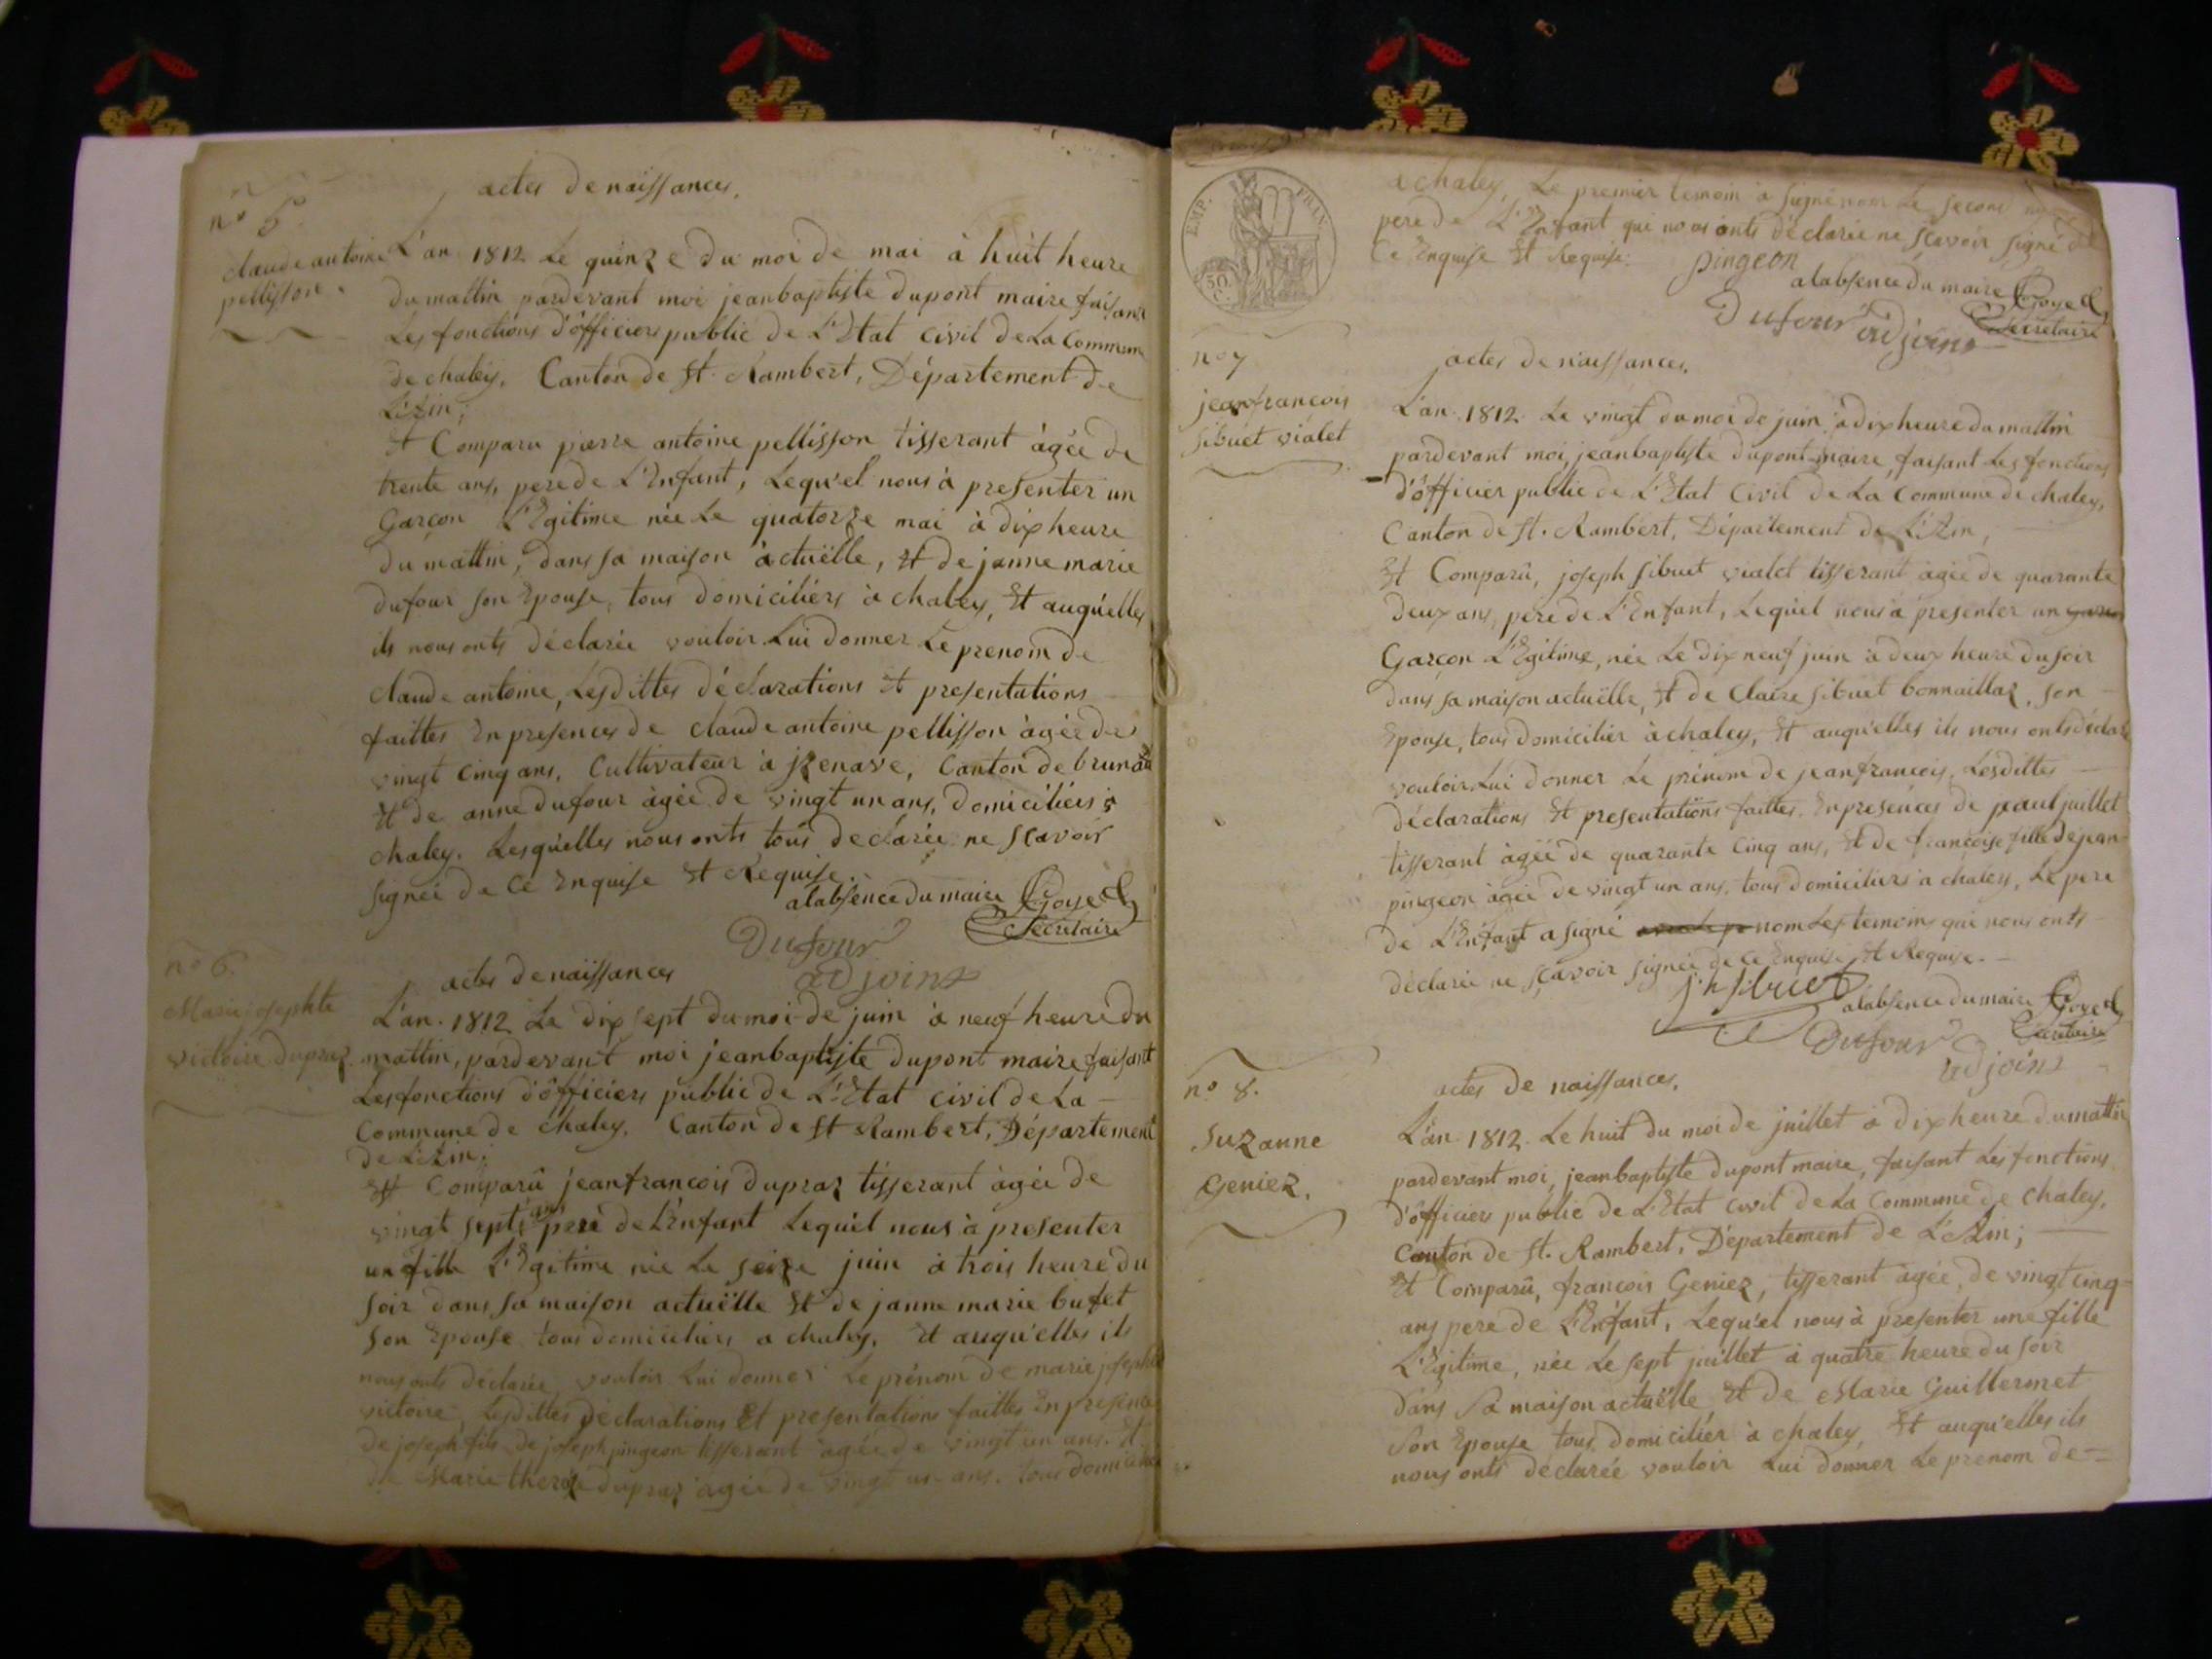 actes de naissances.
nº 5.
claude antoine
pellisson.
L'an 1812 Le quinze du moi de mai à huit heure
du mattin pardevant moi jeanbaptiste dupont maire faisant
Les fonctions d'officiers public de L'Etat civil de La Commune
de chaley, Canton de St. Rambert, Département de
L'Ain;
Et Comparu pierre antoine pellisson tisserant àgée de
trente ans, pere de L'Enfant, Lequ'el nous à presenter un
Garçon L'Egitime née Le quatorze mai à dix heure
du mattin, dans sa maison àctuëlle, Et de janne marie
dufour son Epouse, tous domiciliers à chaley, Et auqu'elles
ils nous onts déclarée vouloir Lui donner Le prenom de
claude antoine, Lesdittes déclarations Et presentations
faittes En presences de claude antoine pellisson àgée de
vingt cinq ans, Cultivateur à jzenave, Canton de
Et de anne dufour àgée de vingt un ans, domiciliers à
chaley. Lesqu'elles nous onts tous declarée ne scavoir
signée de Ce Enquise Et Requise.
alabsence du maire Goyet
Secretaire
Dufour
adjoint
nº 6.
Marie josephte
victoire dupraz
actes de naissances
L'an. 1812 Le dix sept du moi de juin à neuf heure du
mattin, pardevant moi jeanbaptiste dupont maire faisant
Les fonctions d'officiers public de L'Etat civil de La
Commune de chaley, Canton de St Rambert, Département
de L'Ain;
Et Comparû jeanfrancois dupraz tisserant àgée de
vingt sept ans pere de L'Enfant Lequ'el nous à presenter
un fille L'Egitime née Le seize juin à trois heure du
soir dans sa maison actuëlle Et de janne marie bufet
son Epouse tous domiciliers a chaley, Et auqu'elles ils
nous onts déclarée vouloir Lui donner Le prénom de marie josephte
victoire, Lesdittes déclarations Et presentations faittes En presence
de joseph fils de joseph pingeon tisserant àgée de vingt un ans. Et
de Marie thereze dupraz àgée de vingt un ans. tous domiciliers
EMP. FRAN.
50 C.
a chaley, Le premier temoin à signé nom Le second
pere de L'Enfant qui nous onts déclarée ne scavoir signé de
Ce Enquise Et Requise. pingeon
alabsence du maire Goyet
Secretaire
Dufour adjoint
nº 7
jeanfrancois
sibuet vialet
actes de naissances.
L'an. 1812. Le vingt du moi de juin à dix heure du mattin
pardevant moi, jeanbaptiste dupont maire, faisant Les fonctions
d'officier public de L'Etat Civil de La Commune de chaley,
Canton de St. Rambert, Département de L'Ain,
Et Comparû, joseph sibuet vialet tisserant àgée de quarante
deux ans, pere de L'Enfant, Lequ'el nous à presenter un
Garçon L'Egitime, née Le dix neuf juin à deux heure du soir
dans sa maison actuëlle, Et de Claire sibuet bonnaillaz, son
Epouse, tous domicilier à chaley, Et auqu'elles ils nous onts déclarée
vouloir Lui donner Le prénom de jeanfrancois, Lesdittes
déclarations Et presentations faittes, En presences de paul juillet
tisserant àgée de quarante cinq ans, Et de françoise fille de jean
pingeon àgée de vingt un ans, tous domiciliers a chaley, Le pere
de L'Enfant a signé nom Les temoins qui nous onts
déclarée ne scavoir signée de ce Enquise Et Requise.
jh sibuet
alabsence du maire Goyet
Secretaire
Dufour
adjoint
nº 8.
Suzanne
Geniez.
actes de naissances.
L'an 1812. Le huit du moi de juillet à dix heure du mattin
pardevant moi, jeanbaptiste dupont maire, faisant Les fonctions
d'officiers public de L'Etat civil de La Commune de chaley,
Canton de St. Rambert, Département de L'Ain;
Et Comparû, francois Geniez, tisserant àgée, de vingt cinq
ans pere de L'Enfant, Lequ'el nous à presenter une fille
L'Egitime, née Le sept juillet à quatre heure du soir
dans Sa maison actuëlle Et de Marie Guillermet
Son Epouse tous domicilier à chaley, Et auqu'elles ils
nous onts déclarée vouloir Lui donner Le prenom de =